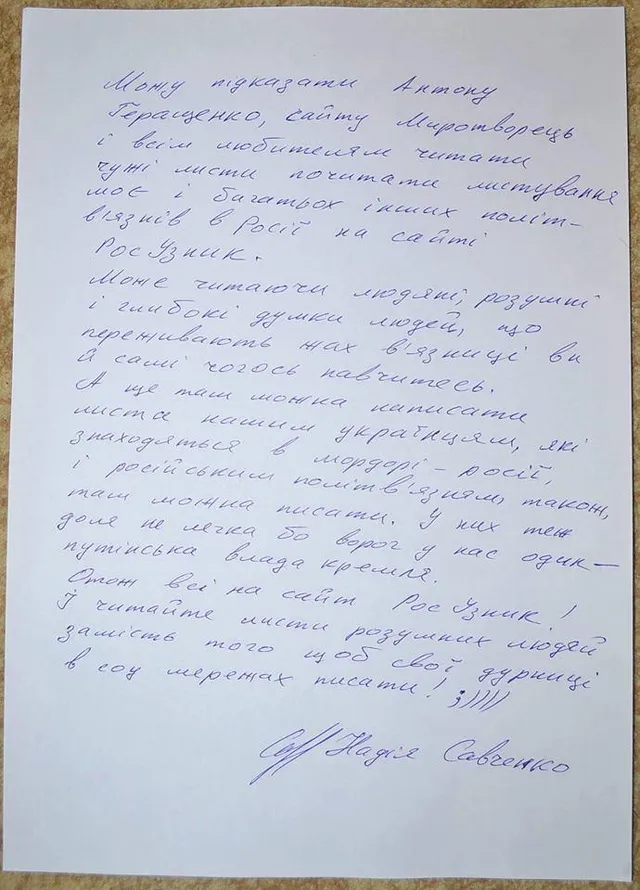 Можу підказати Антону
Геращенко, сайту Миротворець
і всім любителям читати
чужі листи почитати листування
моє і багатьох інших політ-
в'язнів в Росії на сайті
РосУзник.
Може читаючи людяні, розумні
і глибокі думки людей, що
переживають жах в'язниці ви
й самі чогось навчитесь.
А ще там можна написати
листа нашим українцям, які
знаходяться в мордорі - росії,
і російським політв'язням, також,
там можна писати. У них теж
доля не легка бо ворог у нас один —
путінська влада кремля.
Отож всі на сайт РосУзник!
І читайте листи розумних людей
замість того щоб свої дурниці
в соц мережах писати! ;))))
Надія Савченко